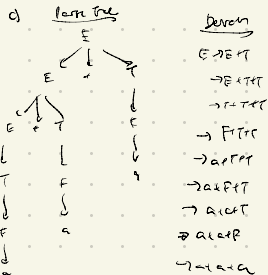 c) Parse Tree
E
E + T
E + T F
T F a
F a
a
Derivation
E → E+T
→ E+T+T
→ T+T+T
→ F+T+T
→ a+T+T
→ a+F+T
→ a+a+T
→ a+a+F
→ a+a+a